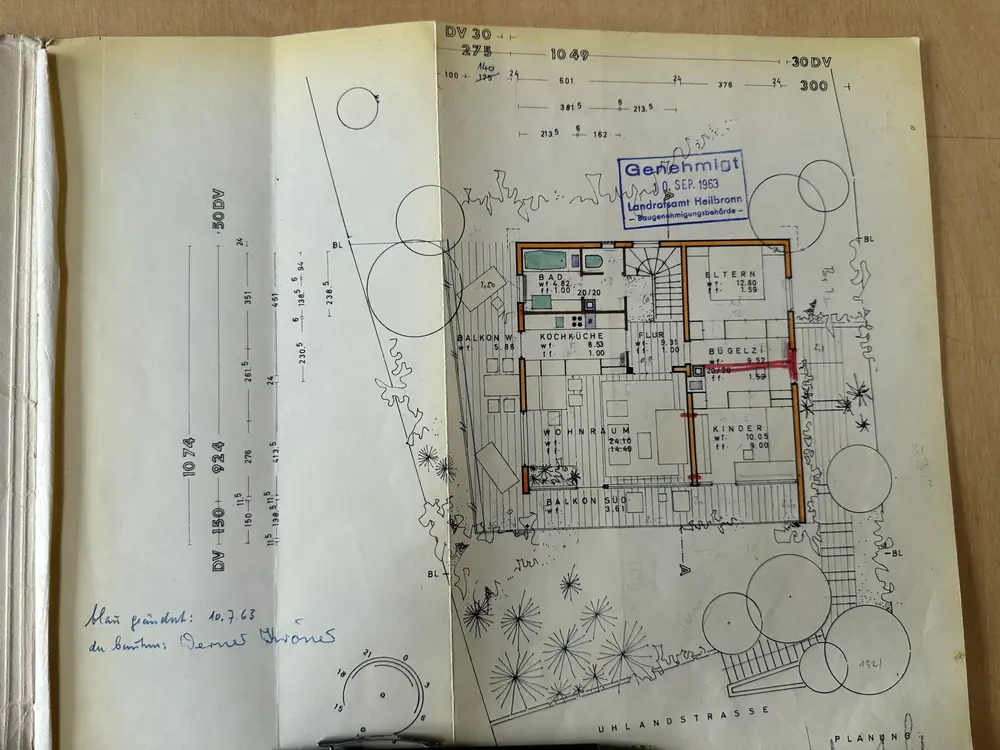 DV 30
275
1049
30 DV
140
175
100
24
601
24
376
24
300
381.5
6
213.5
213.5
6
162
Genehmigt
10. SEP. 1963
Landratsamt Heilbronn
- Baugenehmigungsbehörde -
BL
BL
50 DV
24
351
451
94
6
138.5
6
238.5
230.5
261.5
24
1074
924
276
413.5
11.5
150
138.5
11.5
11.5
DV 150
BAD
wf. 4.82
ff. 1.00
20/20
ELTERN
wf. 12.80
ff. 1.59
1,50
BALKON W.
wf. 5.86
KOCHKÜCHE
wf. 8.53
ff. 1.00
FLUR
wf. 9.31
ff. 1.00
BÜGELZI.
wf. 9.52
20/20
ff. 1.59
WOHNRAUM
wf. 24.10
ff. 14.40
KINDER
wf. 10.05
ff. 9.00
BALKON SÜD
wf. 3.61
A
BL
BL
blau geändert: 10.7.63
der Bauherr:
21
0
18
3
15
6
1321
UHLANDSTRASSE
PLANUNG